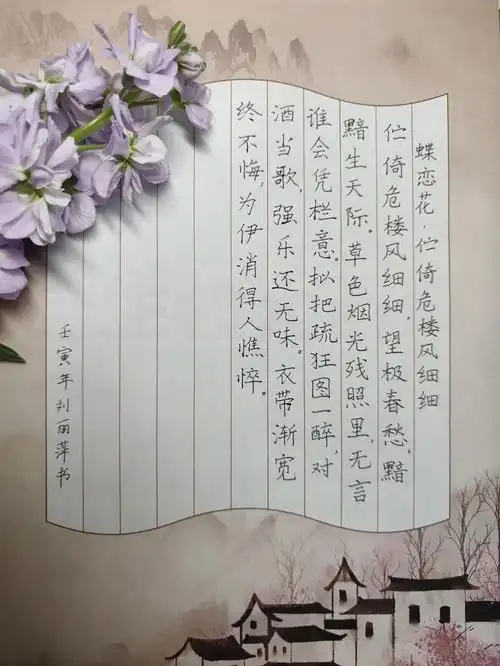 蝶恋花·伫倚危楼风细细
伫倚危楼风细细,望极春愁,黯
黯生天际。草色烟光残照里,无言
谁会凭栏意。拟把疏狂图一醉,对
酒当歌,强乐还无味。衣带渐宽
终不悔,为伊消得人憔悴。
壬寅年刘丽萍书